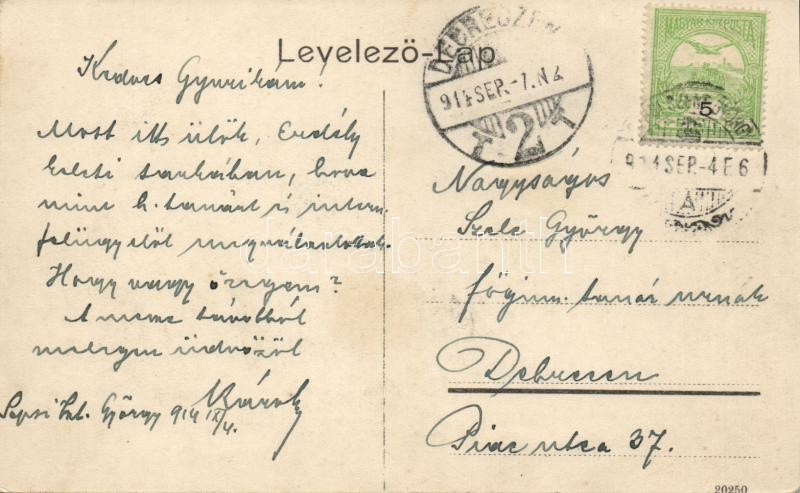 Levelező-Lap
Kedves Gyurikám!
Most itt ülök, Erdély
keleti sarkában, hova
mint h. tanárt és intern.
felügyelőt megválasztottak.
Hogy vagy öregem?
A messze távolból
melegen üdvözöl
Károly
Sepsi Szt. György 914 IX/4.
Nagyságos
Szele György
főgimn. tanár urnak
Debrecen
Piac utca 37.
MAGYAR KIR. POSTA
5
DEBRECZEN
914 SEP.-7.N 4
T 2 T
914 SEP.-4 E 6
A
darabanth
20250